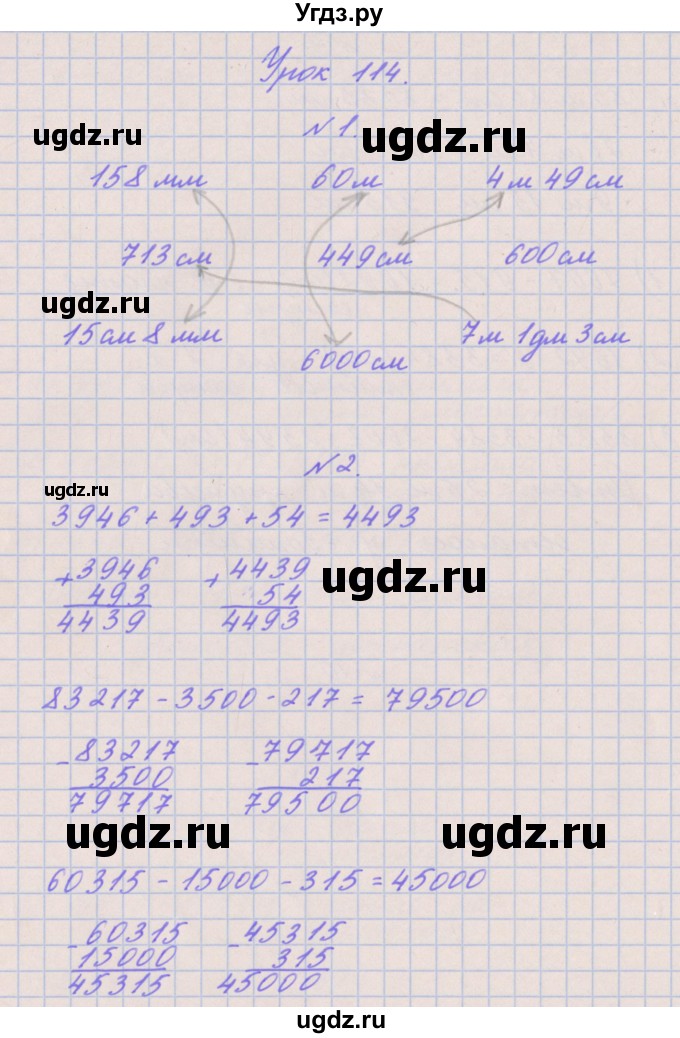 Угдз.ру
Урок 114.
ugdz.ru
№1.
ugdz.ru
158 мм 60м 4м 49см
713см 449см 600см
ugdz.ru
15см 8мм 6000см 7м 1дм 3см
№2.
ugdz.ru
3946 + 493 + 54 = 4493
+ 3946 + 4439
ugdz.ru
493 54
4439 4493
83217 - 3500 - 217 = 79500
- 83217 - 79717
3500 217
79717 79500
ugdz.ru ugdz.ru
60315 - 15000 - 315 = 45000
- 60315 - 45315
15000 315
45315 45000
ugdz.ru